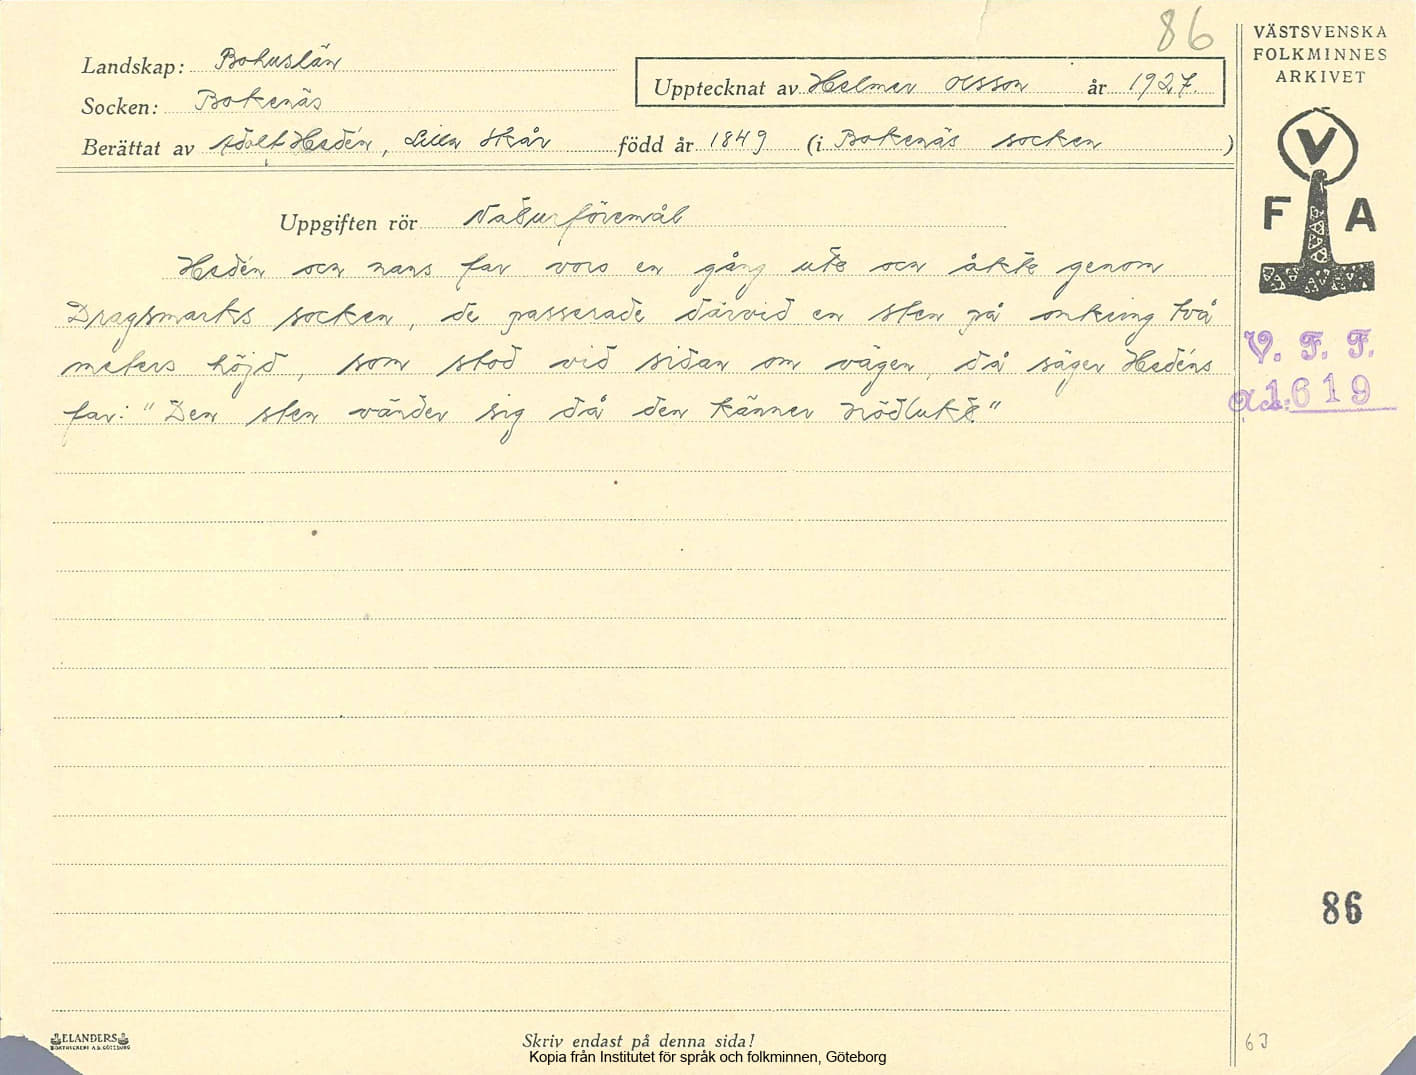 86
VÄSTSVENSKA
FOLKMINNES
ARKIVET
Landskap: Bohuslän
Upptecknat av Helmer Olsson år 1927.
Socken: Bokenäs
Berättat av Adolf Hedén, Lilla Skår född år 1849 (i Bokenäs socken)
V
F A
Uppgiften rör Naturföremål
Hedén och hans far voro en gång ute och åkte genom
Dragsmarks socken, de passerade därvid en sten på omkring två
meters höjd, som stod vid sidan om vägen, då säger Hedéns
far: "Den sten vänder sig då den känner brödlukt"
V. F. F.
Acc: 1619
86
ELANDERS
BOKTRYCKERI A.B. GÖTEBORG
Skriv endast på denna sida!
Kopia från Institutet för språk och folkminnen, Göteborg